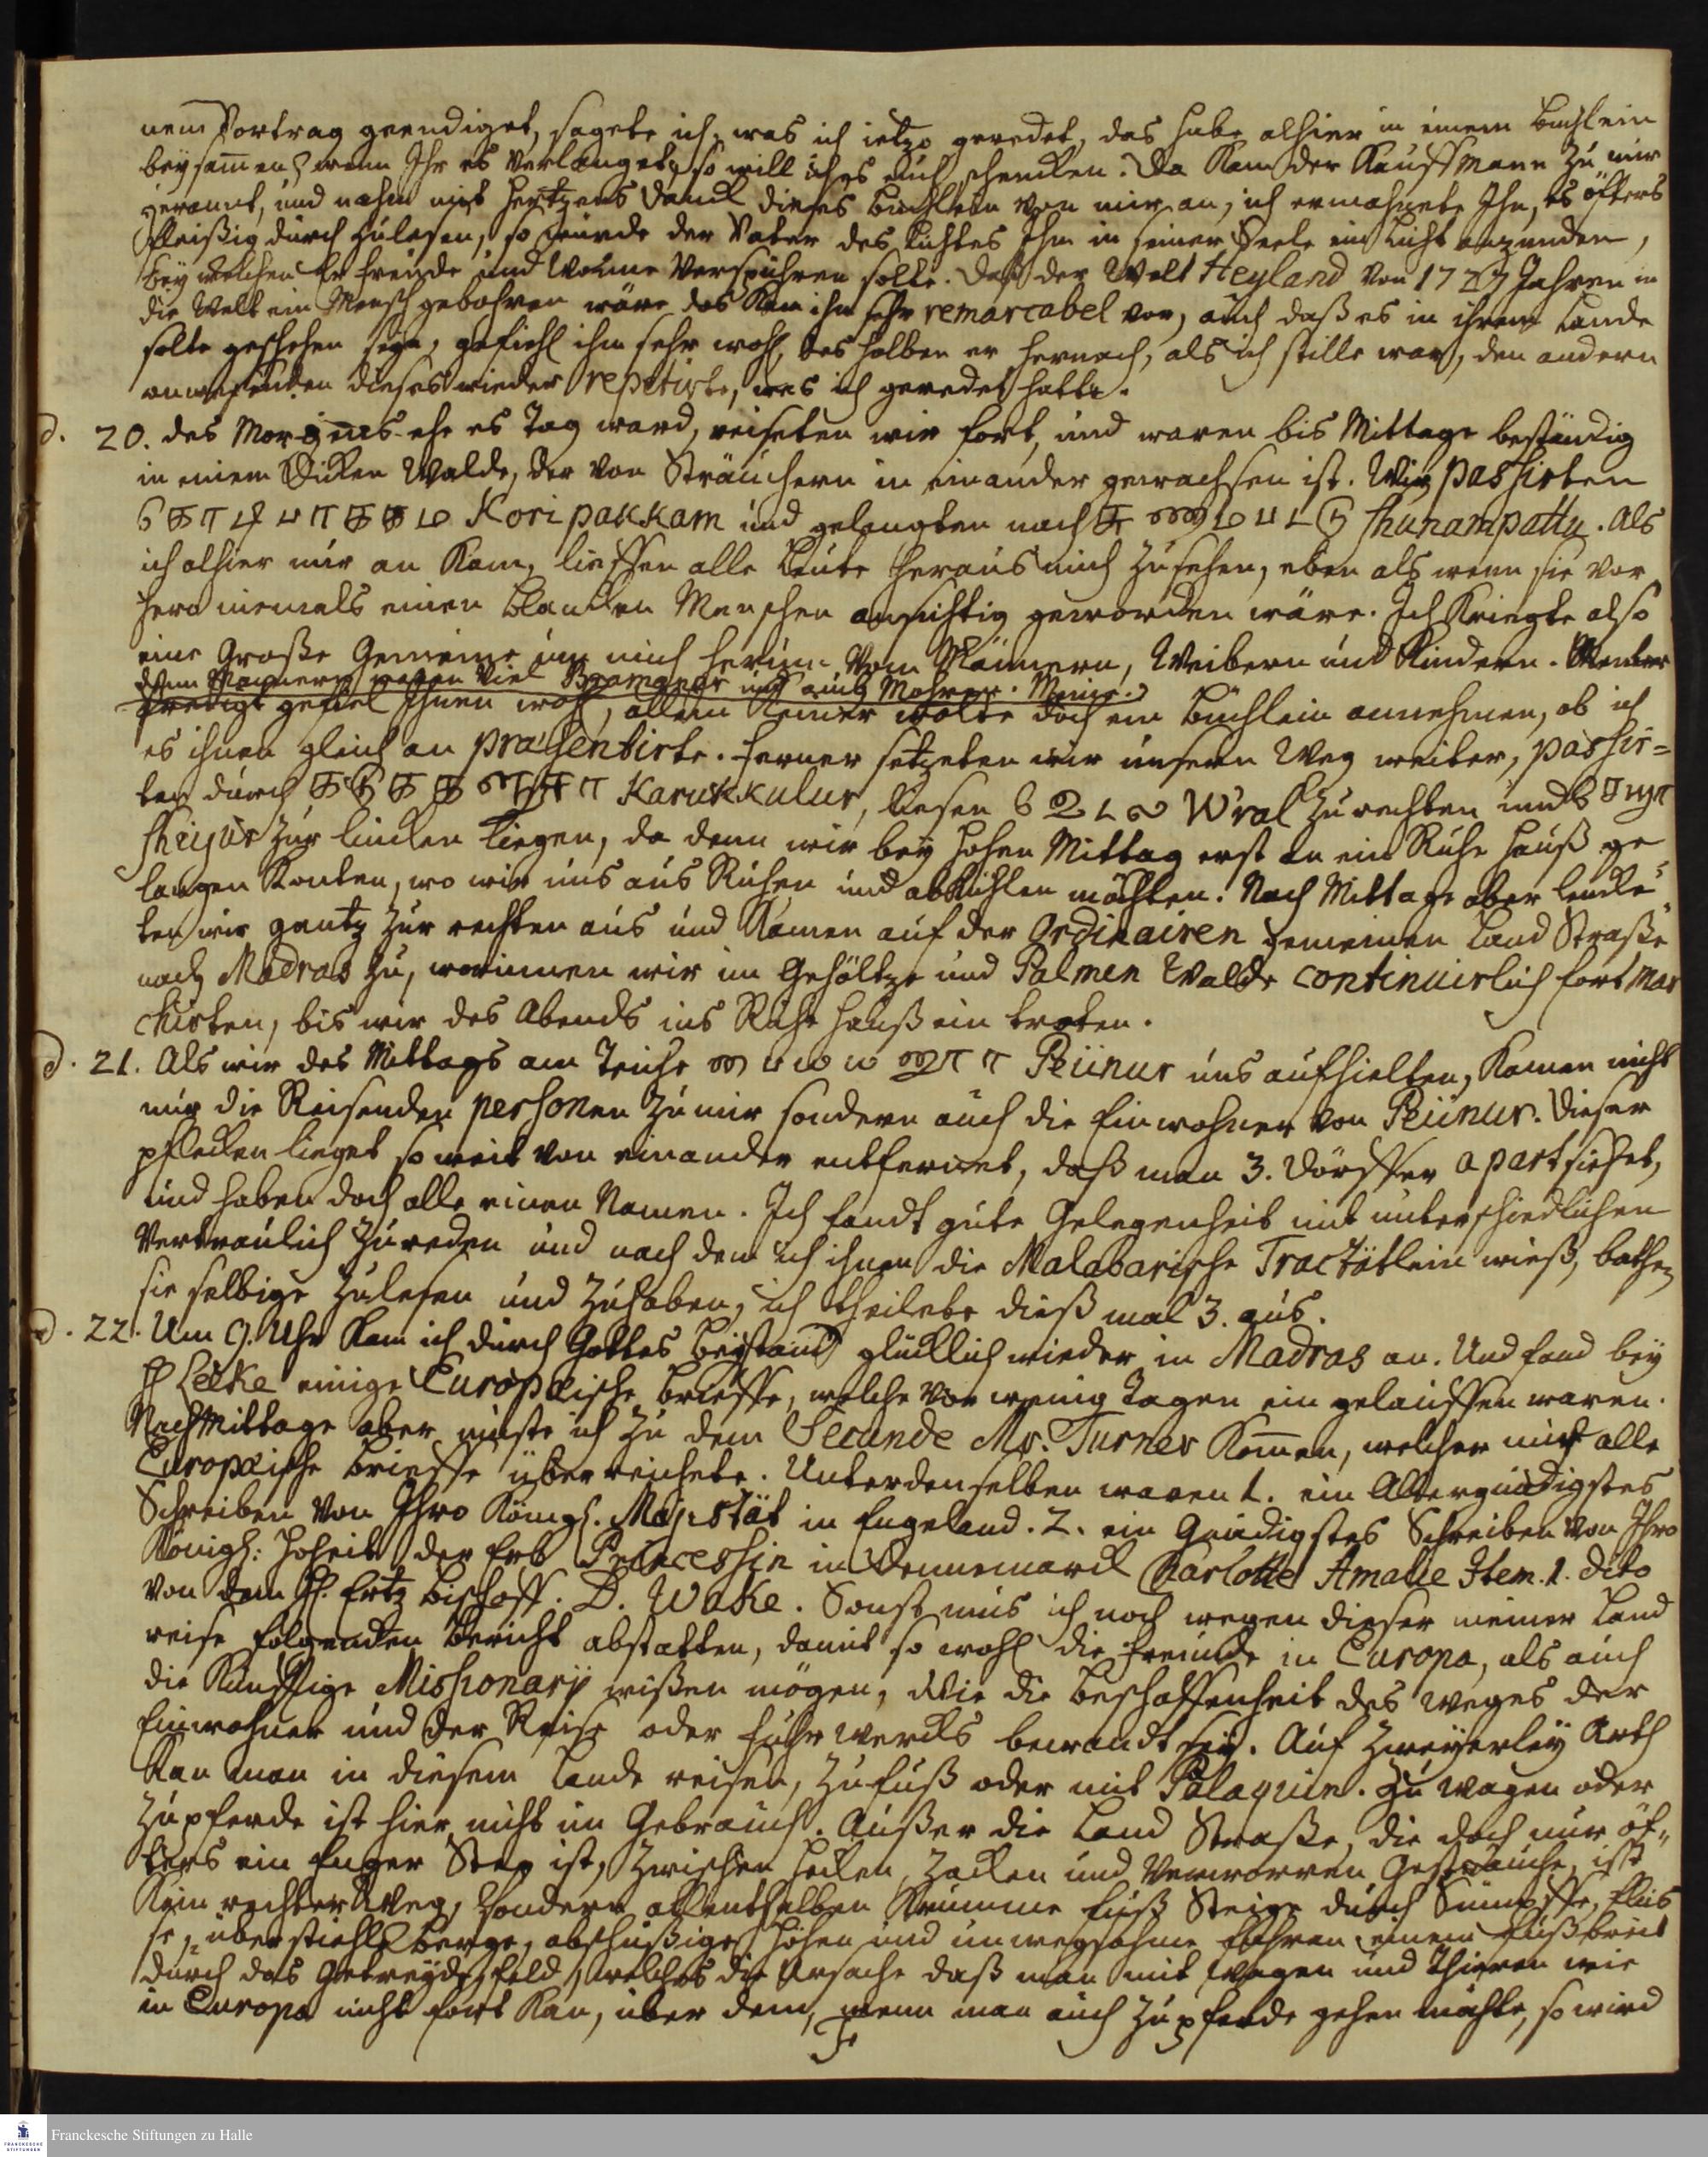 nem Vortrag geendiget, sagete ich, was ich ietzo geredet, das habe alhier in einem Büchlein
beysamen, wenn Ihr es verlanget, so will ich es euch schencken. Da kam der Kauffmann zu mir
gerannt, und nahm mit hertzens Danck dieses Büchlein von mir an, ich ermahnete Ihn, es öfters
fleißig durch zulesen, so würde der Vater des Lichtes Ihm in seiner Seele ein Licht anzünden,
bey welchen Er Freude und Wonne verspühren solte. Daß der Welt Heyland von 1727 Jahren in
die Welt ein Mensch gebohren wäre das kam ihm sehr remarcabel vor, auch daß es in ihrem Lande
solte geschehen seyn, gefiehl ihm sehr wohl, des halben er hernach, als ich stille war, den andern
anwesenden dieses wieder repetirte, was ich geredet hatte.
d. 20. des Morgens ehe es Tag ward, reiseten wir fort, und waren bis Mittage beständig
in einem Dicken Walde, der von Sträuchern in einander gewachsen ist. Wir passirten
Koripakkam und gelangten nach Shunampattu. Als
ich alhier nur an kam, lieffen alle Leute heraus mich zusehen, eben als wenn sie vor
hero niemals einen Blancken Menschen ansichtig geworden wäre. Ich kriegte also
eine Große Gemeine um mich herum von Männern, Weibern und Kindern.
Unter denen Männern waren viel Bramaner und auch Mohren. Meine
Predigt gefiel Ihnen wohl, allein Keiner wolte doch ein Büchlein annehmen, ob ich
es ihnen gleich an præsentirte. Ferner setzeten wir unsern Weg weiter, passir=
ten durch Karukkulur, liesen Wral zu rechten und
Sheijur zur lincken liegen, da denn wir bey hohen Mittag erst an ein Ruhe hauß ge
langen konten, wo wir uns aus Ruhen und abkühlen möchten. Nach Mittage aber lencke"
ten wir gantz zur rechten aus und kamen auf der Ordinairen gemeinen Land Straße
nach Madras zu, worinnen wir im Gehöltze und Palmen Walde continuirlich fort mar
chirten, bis wir des Abends ins Ruhe hauß ein traten.
d. 21. Als wir des Mittags am Teiche Peiinur uns aufhielten, kamen nicht
nur die Reisenden personen zu mir sondern auch die Einwohner von Peiinur. Dieser
pflecken lieget so weit von einander entfernet, daß man 3. Dörffer apart siehet,
und haben doch alle einen Namen. Ich fandt gute Gelegenheit mit unterschiedlichen
vertraulich zureden und nach dem ich ihnen die Malabarische Tractätlein wieß, bathen
sie selbige zulesen und zuhaben, ich theilete dieß mal 3. aus.
d. 22. Um 9. Uhr kam ich durch Gottes beystand glücklich wieder in Madras an. Und fand bey
H Lecke einige Europæische brieffe, welche vor wenig Tagen ein gelauffen waren.
Nach Mittage aber muste ich zu dem Secunde Mr. Turner kommen, welcher mir alle
Europæische brieffe überreichete. Unter denselben waren 1. ein Allergnädigstes
Schreiben von Ihro Königl. Majestät in Engeland. 2. ein Gnädigstes Schreiben von Ihro
Königl: Hoheit der Erb Princessin in Dennemarck Charlotte Amalie Item. 1. dito
von dem H. Ertz bischoff. D. Wake. Sonst mus ich noch wegen dieser meiner Land
reise folgenden Bericht abstatten, damit so wohl die Freunde in Europa, als auch
die künfftige Missionarii wißen mögen, Wie die beschaffenheit des weges der
Einwohner und der Reise oder fuhr wercks bewandt sey. Auf zweyerley Arth
kan man in diesem Lande reisen, zu fuß oder mit Palaquin. Zu wagen oder
zu pferde ist hier nicht im Gebrauch. Außer die Land Straße, die doch nur öf"
ters ein Enger Steg ist, zwischen hecken, Zacken und verworren Gesträuche, ist
kein rechter Weg, sondern allenthalben krumme fuß Steige durch Sümpffe, flüs
se, über stiehle berge, abschüßige höhen und unwegsahme einem fußbreit
durch das Getreyde, feld, welches die Ursache daß man mit wagen und Thieren wie
in Europa nicht fort kan, über dem, wenn man auch zu pferde gehen möchte, so wird
Franckesche Stiftungen zu Halle